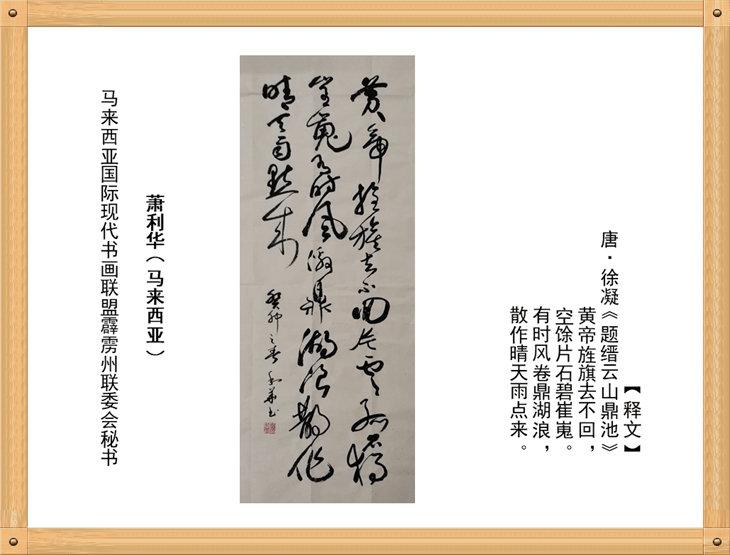 【释文】
唐·徐凝《题缙云山鼎池》
黄帝旌旗去不回，
空馀片石碧崔嵬。
有时风卷鼎湖浪，
散作晴天雨点来。
黄帝旌旗去不回片云孤石独
崔嵬有时风激鼎湖浪散作
晴天雨点来
癸卯之春利华书
萧利华（马来西亚）
马来西亚国际现代书画联盟霹雳州联委会秘书